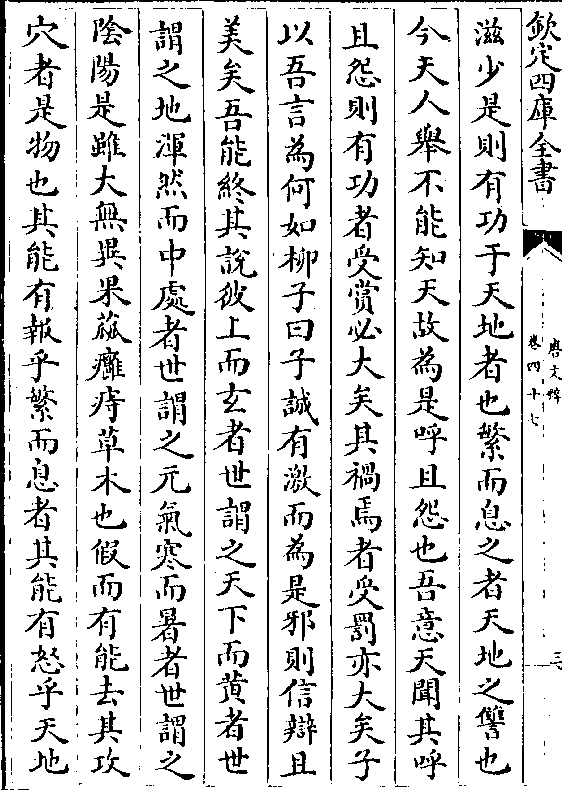 欽定四庫全書
唐文粹
卷四十七
三
滋少是則有功于天地者也繁而息之者天地之讐也
今夫人舉不能知天故為是呼且怨也吾意天聞其呼
且怨則有功者受賞必大矣其禍焉者受罰亦大矣子
以吾言為何如柳子曰子誠有激而為是邪則信辯且
美矣吾能終其說彼上而玄者世謂之天下而黄者世
謂之地渾然而中處者世謂之元氣寒而暑者世謂之
陰陽是雖大無異果蓏癰痔草木也假而有能去其攻
穴者是物也其能有報乎繁而息者其能有怒乎天地